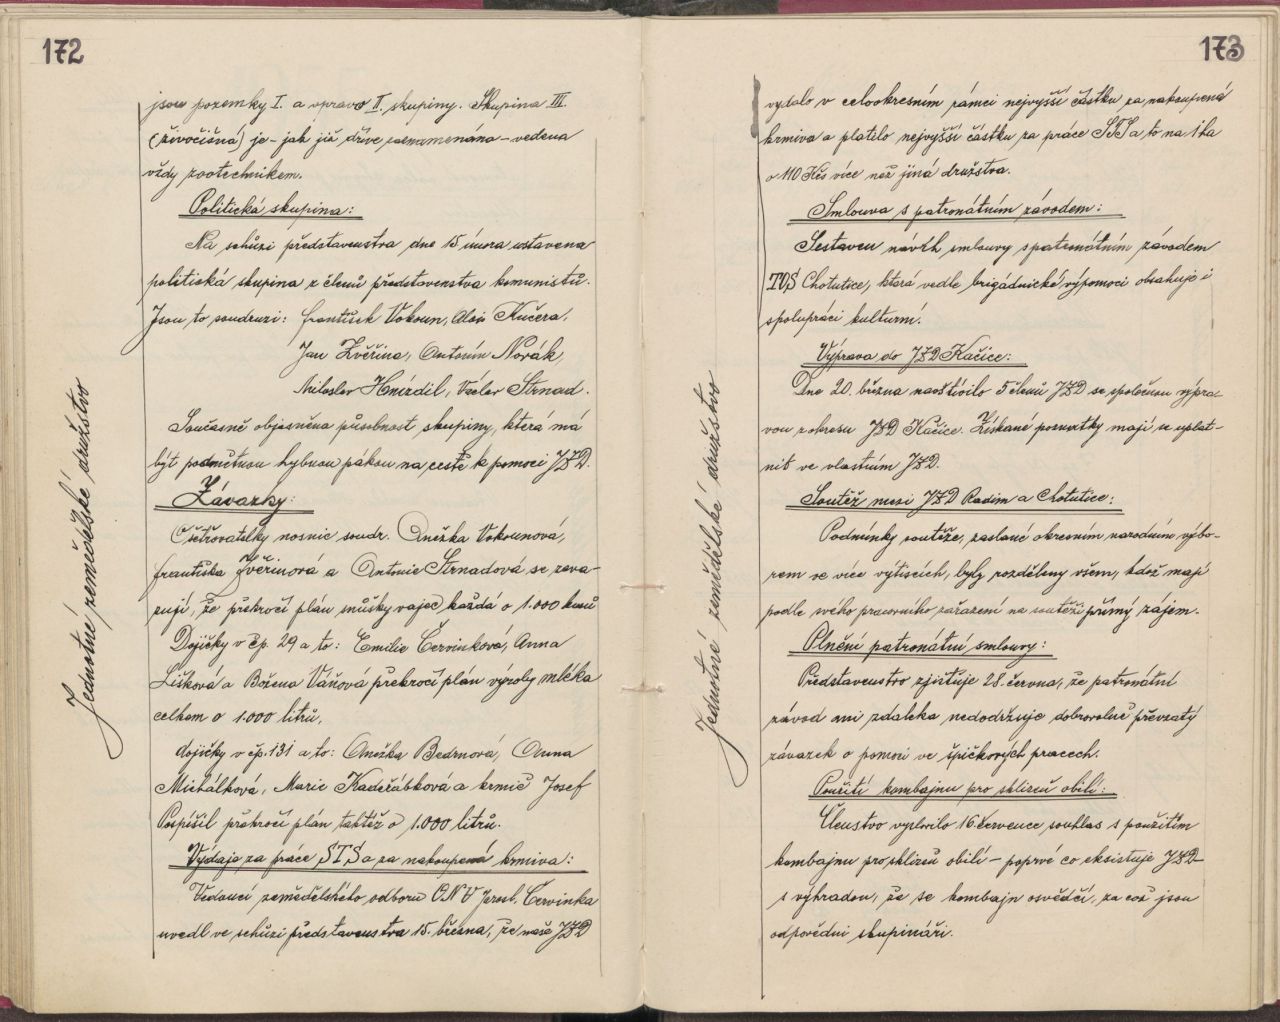 172
Jednotné zemědělské družstvo
jsou pozemky I. a vpravo II. skupiny. Skupina III.
(živočišná) je - jak již dříve zaznamenáno - vedena
vždy zootechnikem.
Politická skupina:
Na schůzi představenstva dne 15 února ustavena
politická skupina z členů představenstva komunistů.
Jsou to soudruzi: František Vokoun, Alois Kučera,
Jan Zvěřina, Antonín Novák,
Miloslav Hnízdil, Václav Strnad.
Současně objasněna působnost skupiny, která má
být podnětnou hybnou pákou na cestě k pomoci JZD.
Závazky:
Ošetřovatelky nosnic soudr. Anežka Vokounová,
Františka Zvěřinová a Antonie Strnadová se zava-
zují, že překročí plán snůšky vajec každá o 1.000 kusů
Dojičky v čp. 29 a to: Emilie Červinková, Anna
Lišková a Božena Váňová překročí plán výroby mléka
celkem o 1.000 litrů.
dojičky v čp. 131 a to: Anežka Bedrnová, Anna
Michálková, Marie Kadeřábková a krmič Josef
Pospíšil překročí plán taktéž o 1.000 litrů.
Výdaje za práce STS a za nakoupená krmiva:
Vedoucí zemědělského odboru ONV Jarosl. Červinka
uvedl ve schůzi představenstva 15. března, že naše JZD
173
Jednotné zemědělské družstvo
vydalo v celookresním rámci nejvyšší částku za nakoupená
krmiva a platilo nejvyšší částku za práce STS a to na 1 ha
o 110 Kčs více než jiná družstva.
Smlouva s patronátním závodem:
Sestaven návrh smlouvy s patronátním závodem
TOS Chotutice, která vedle brigádnické výpomoci obsahuje i
spolupráci kulturní.
Výprava do JZD Kačice:
Dne 20. března navštívilo 5 členů JZD se společnou výpra-
vou z okresu JZD Kačice. Získané poznatky mají se uplat-
nit ve vlastním JZD.
Soutěž mezi JZD Radim a Chotutice:
Podmínky soutěže, zaslané okresním národním výbo-
rem ve více výtiscích, byly rozděleny všem, kdož mají
podle svého pracovního zařazení na soutěži přímý zájem.
Plnění patronátní smlouvy:
Představenstvo zjišťuje 28. června, že patronátní
závod ani zdaleka nedodržuje dobrovolně převzatý
závazek o pomoci ve špičkových pracech.
Použití kombajnu pro sklizeň obilí:
Členstvo vyslovilo 16. července souhlas s použitím
kombajnu pro sklizeň obilí - poprvé co eksistuje JZD -
s výhradou, že se kombajn osvědčí, za což jsou
odpovědni skupináři.